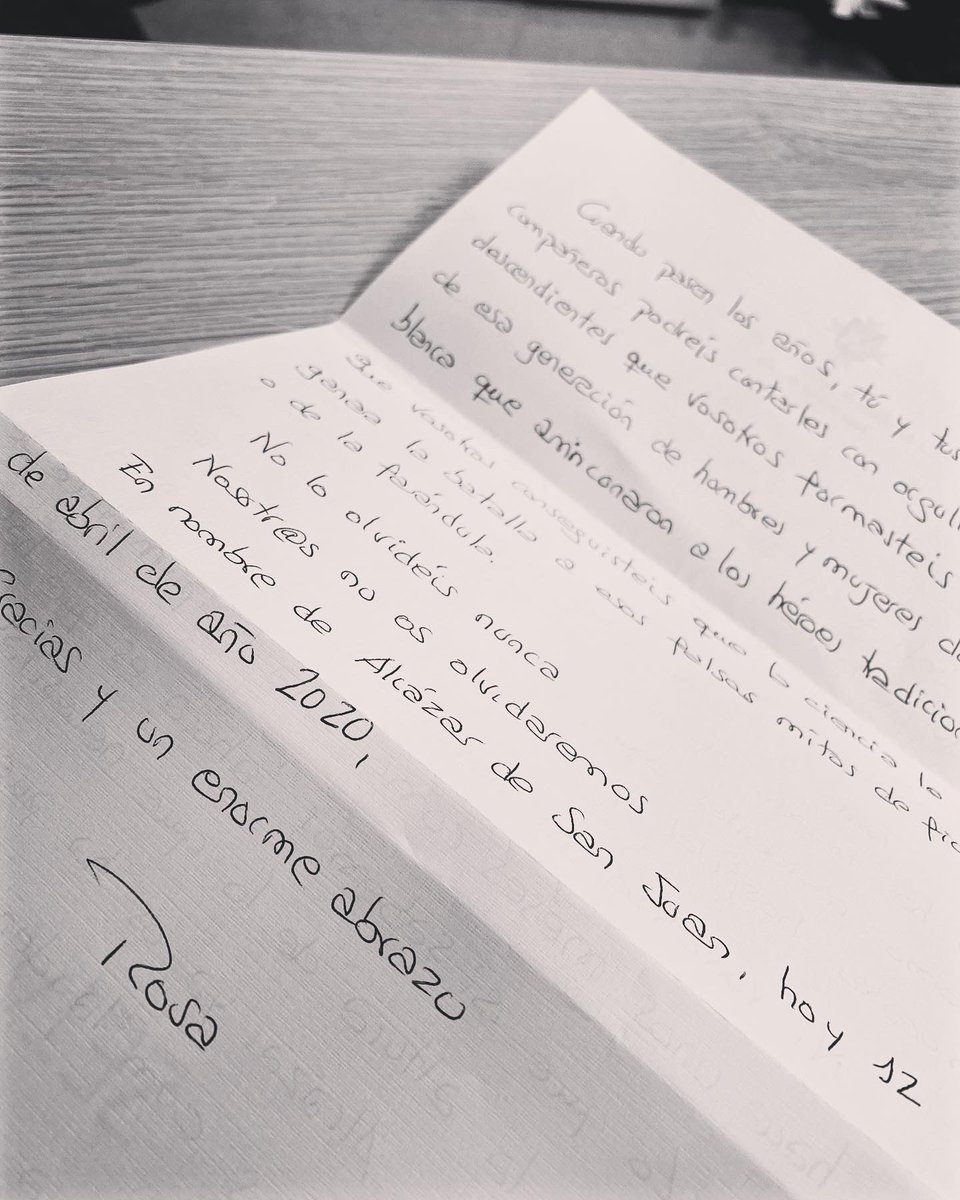 Cuando pasen los años, tú y tus
compañeros podreis contarles con
descendientes que vosotros formasteis
de esa generación de hombres y mujeres
blanca que arrinconaron a los héroes
Que vosotros conseguisteis que la ciencia le
ganase la batalla a esos falsos mitos de
o de la farándula.
No lo olvidéis nunca
Nosotr@s no os olvidaremos
En nombre de Alcázar de San Juan, hoy 12
de abril de año 2020,
Gracias y un enorme abrazo
Rosa